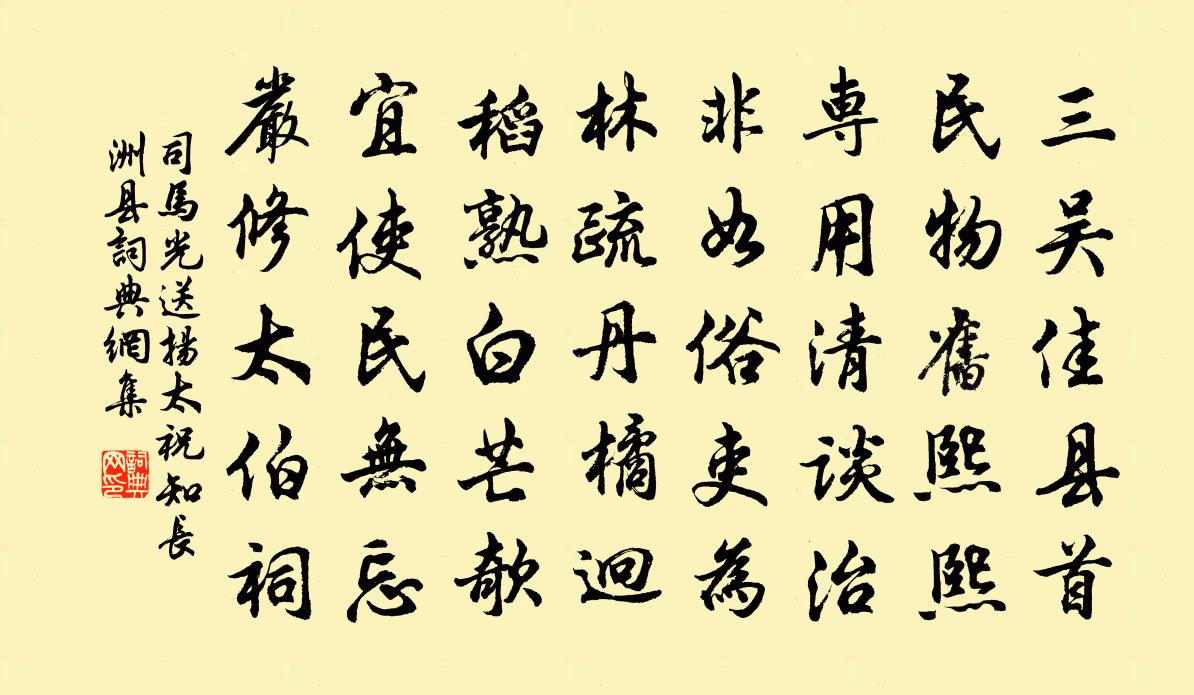 三吴佳县首
民物舊熙熙
専用清談治
非如俗吏為
林疏丹橘迥
稻熟白芒欹
宜使民無忘
嚴修太伯祠
司馬光送揚太祝知長
洲县詞典網集
詞典網印